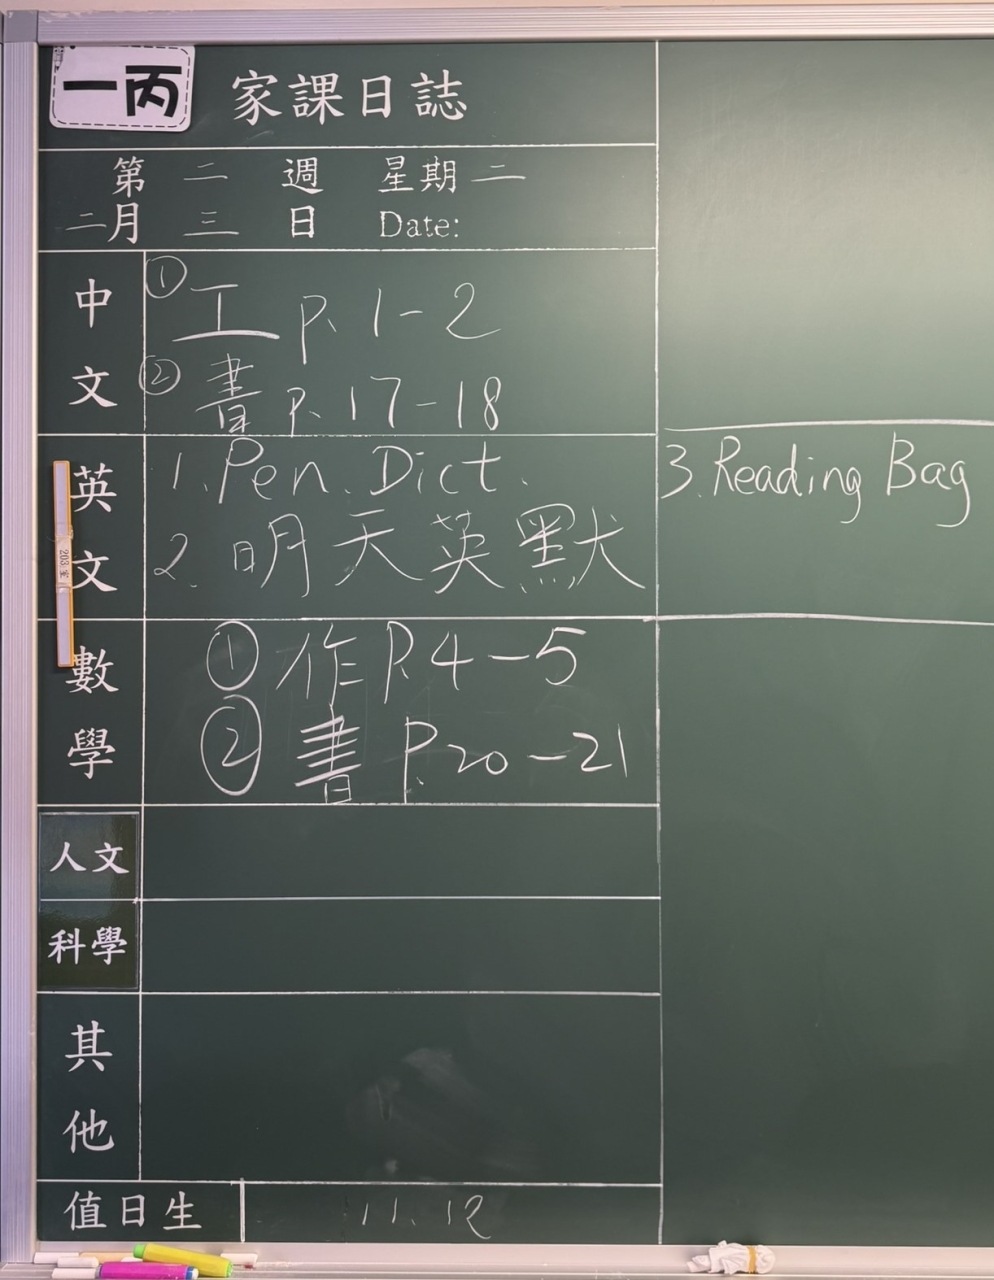 一丙 家課日誌
第 二 週 星期 二
二月 三 日 Date:
中文
① 工 P. 1-2
② 書 P. 17-18
英文
1. Pen. Dict.
2. 明天英默
3. Reading Bag
數學
① 作 P. 4-5
② 書 P. 20-21
人文
科學
其他
值日生 11. 12